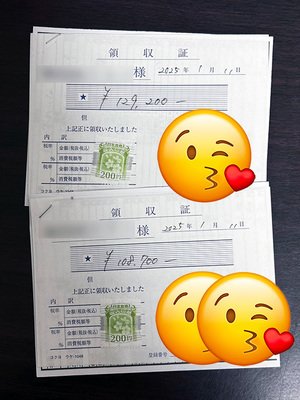 領収証
様 2025年 1月 11日
★ ¥129,200—
但
上記正に領収いたしました
内 訳
税率 金額(税抜・税込)
% 消費税額等
200円
コクヨ ウケ-1048
領収証
様 2025年 1月 11日
★ ¥108,700—
但
上記正に領収いたしました
内 訳
税率 金額(税抜・税込)
% 消費税額等
税率 金額(税抜・税込)
% 消費税額等
200円
コクヨ ウケ-1048
登録番号